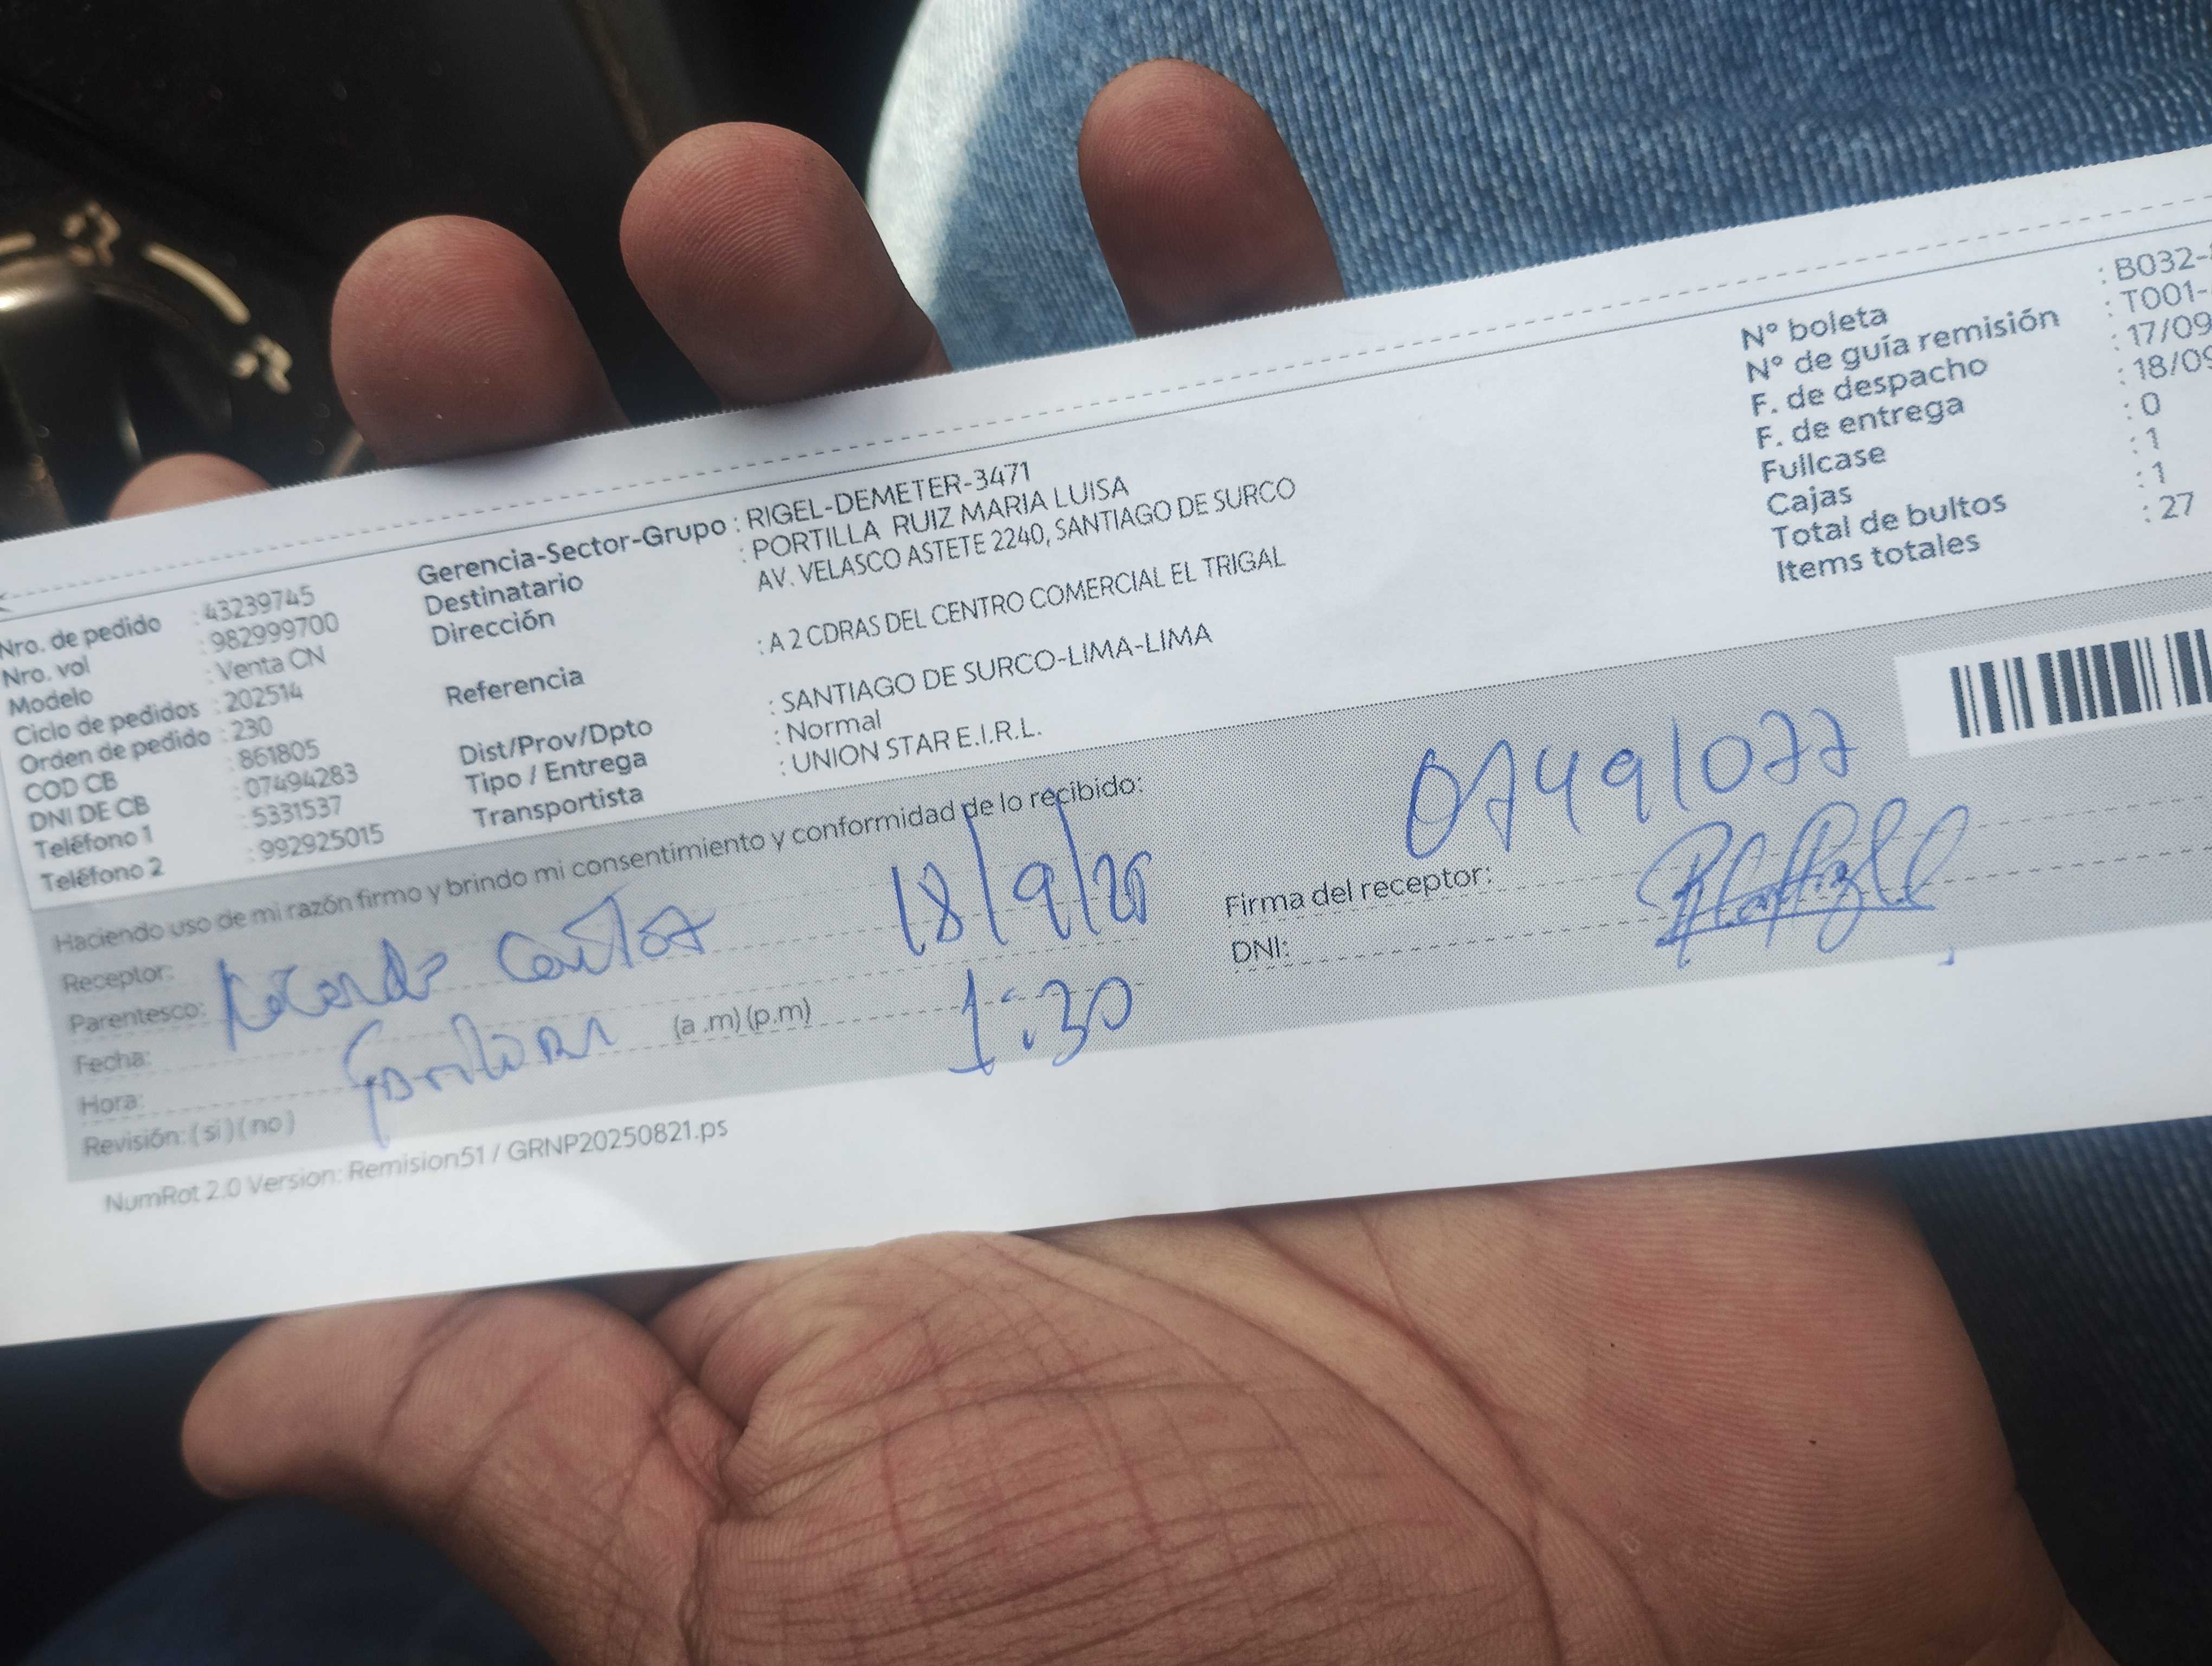 Nro. de pedido : 43239745
Nro. vol : 982999700
Modelo : Venta CN
Ciclo de pedidos : 202514
Orden de pedido : 230
COD CB : 861805
DNI DE CB : 07494283
Teléfono 1 : 5331537
Teléfono 2 : 992925015
Gerencia-Sector-Grupo : RIGEL-DEMETER-3471
Destinatario : PORTILLA RUIZ MARIA LUISA
Dirección AV. VELASCO ASTETE 2240, SANTIAGO DE SURCO
Referencia : A 2 CDRAS DEL CENTRO COMERCIAL EL TRIGAL
Dist/Prov/Dpto : SANTIAGO DE SURCO-LIMA-LIMA
Tipo / Entrega : Normal
Transportista : UNION STAR E.I.R.L.
N° boleta : B032-
N° de guía remisión : T001-
F. de despacho : 17/09
F. de entrega : 18/09
Fullcase : 0
Cajas : 1
Total de bultos : 1
Items totales : 27
Haciendo uso de mi razón firmo y brindo mi consentimiento y conformidad de lo recibido:
Receptor:
Parentesco:
Fecha: 18/9/25
Hora: (a .m) (p.m) 1:30
Revisión: ( si ) ( no )
Firma del receptor: 07491077
DNI:
NumRot 2.0 Version: Remision51 / GRNP20250821.ps